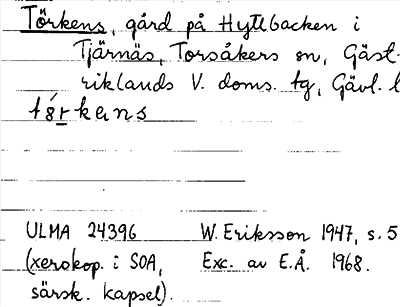 Törkens, gård på Hyttbacken i
Tjärnäs, Torsåkers sn, Gäst-
riklands V. doms. tg, Gävl. l
ULMA 24396 W. Eriksson 1947, s. 5
(xerokop. i SOA, Exc. av E.Å. 1968.
särsk. kapsel).